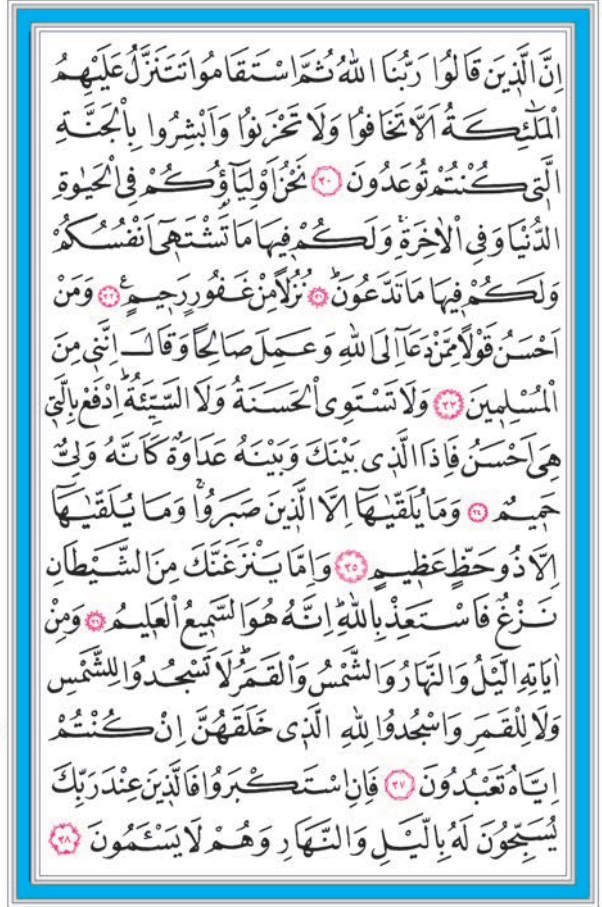 اِنَّ الَّذٖينَ قَالُوا رَبُّنَا اللّٰهُ ثُمَّ اسْتَقَامُوا تَتَنَزَّلُ عَلَيْهِمُ
الْمَلٰٓئِكَةُ اَلَّا تَخَافُوا وَلَا تَحْزَنُوا وَاَبْشِرُوا بِالْجَنَّةِ
الَّتٖى كُنْتُمْ تُوعَدُونَ ﴿٣٠﴾ نَحْنُ اَوْلِيَٓاؤُكُمْ فِى الْحَيٰوةِ
الدُّنْيَا وَفِى الْاٰخِرَةِۚ وَلَكُمْ فٖيهَا مَا تَشْتَهٖٓى اَنْفُسُكُمْ
وَلَكُمْ فٖيهَا مَا تَدَّعُونَؕ ﴿٣١﴾ نُزُلًا مِنْ غَفُورٍ رَحٖيمٍࣖ ﴿٣٢﴾ وَمَنْ
اَحْسَنُ قَوْلًا مِمَّنْ دَعَٓا اِلَى اللّٰهِ وَعَمِلَ صَالِحًا وَقَالَ اِنَّنٖى مِنَ
الْمُسْلِمٖينَ ﴿٣٣﴾ وَلَا تَسْتَوِى الْحَسَنَةُ وَلَا السَّيِّئَةُؕ اِدْفَعْ بِالَّتٖى
هِىَ اَحْسَنُ فَاِذَا الَّذٖى بَيْنَكَ وَبَيْنَهُ عَدَاوَةٌ كَاَنَّهُ وَلِىٌّ
حَمٖيمٌ ﴿٣٤﴾ وَمَا يُلَقّٰيهَٓا اِلَّا الَّذٖينَ صَبَرُواۚ وَمَا يُلَقّٰيهَٓا
اِلَّا ذُو حَظٍّ عَظٖيمٍ ﴿٣٥﴾ وَاِمَّا يَنْزَغَنَّكَ مِنَ الشَّيْطَانِ
نَزْغٌ فَاسْتَعِذْ بِاللّٰهِؕ اِنَّهُ هُوَ السَّمٖيعُ الْعَلٖيمُ ﴿٣٦﴾ وَمِنْ
اٰيَاتِهِ الَّيْلُ وَالنَّهَارُ وَالشَّمْسُ وَالْقَمَرُؕ لَا تَسْجُدُوا لِلشَّمْسِ
وَلَا لِلْقَمَرِ وَاسْجُدُوا لِلّٰهِ الَّذٖى خَلَقَهُنَّ اِنْ كُنْتُمْ
اِيَّاهُ تَعْبُدُونَ ﴿٣٧﴾ فَاِنِ اسْتَكْبَرُوا فَالَّذٖينَ عِنْدَ رَبِّكَ
يُسَبِّحُونَ لَهُ بِالَّيْلِ وَالنَّهَارِ وَهُمْ لَا يَسْئَمُونَ ﴿٣٨﴾